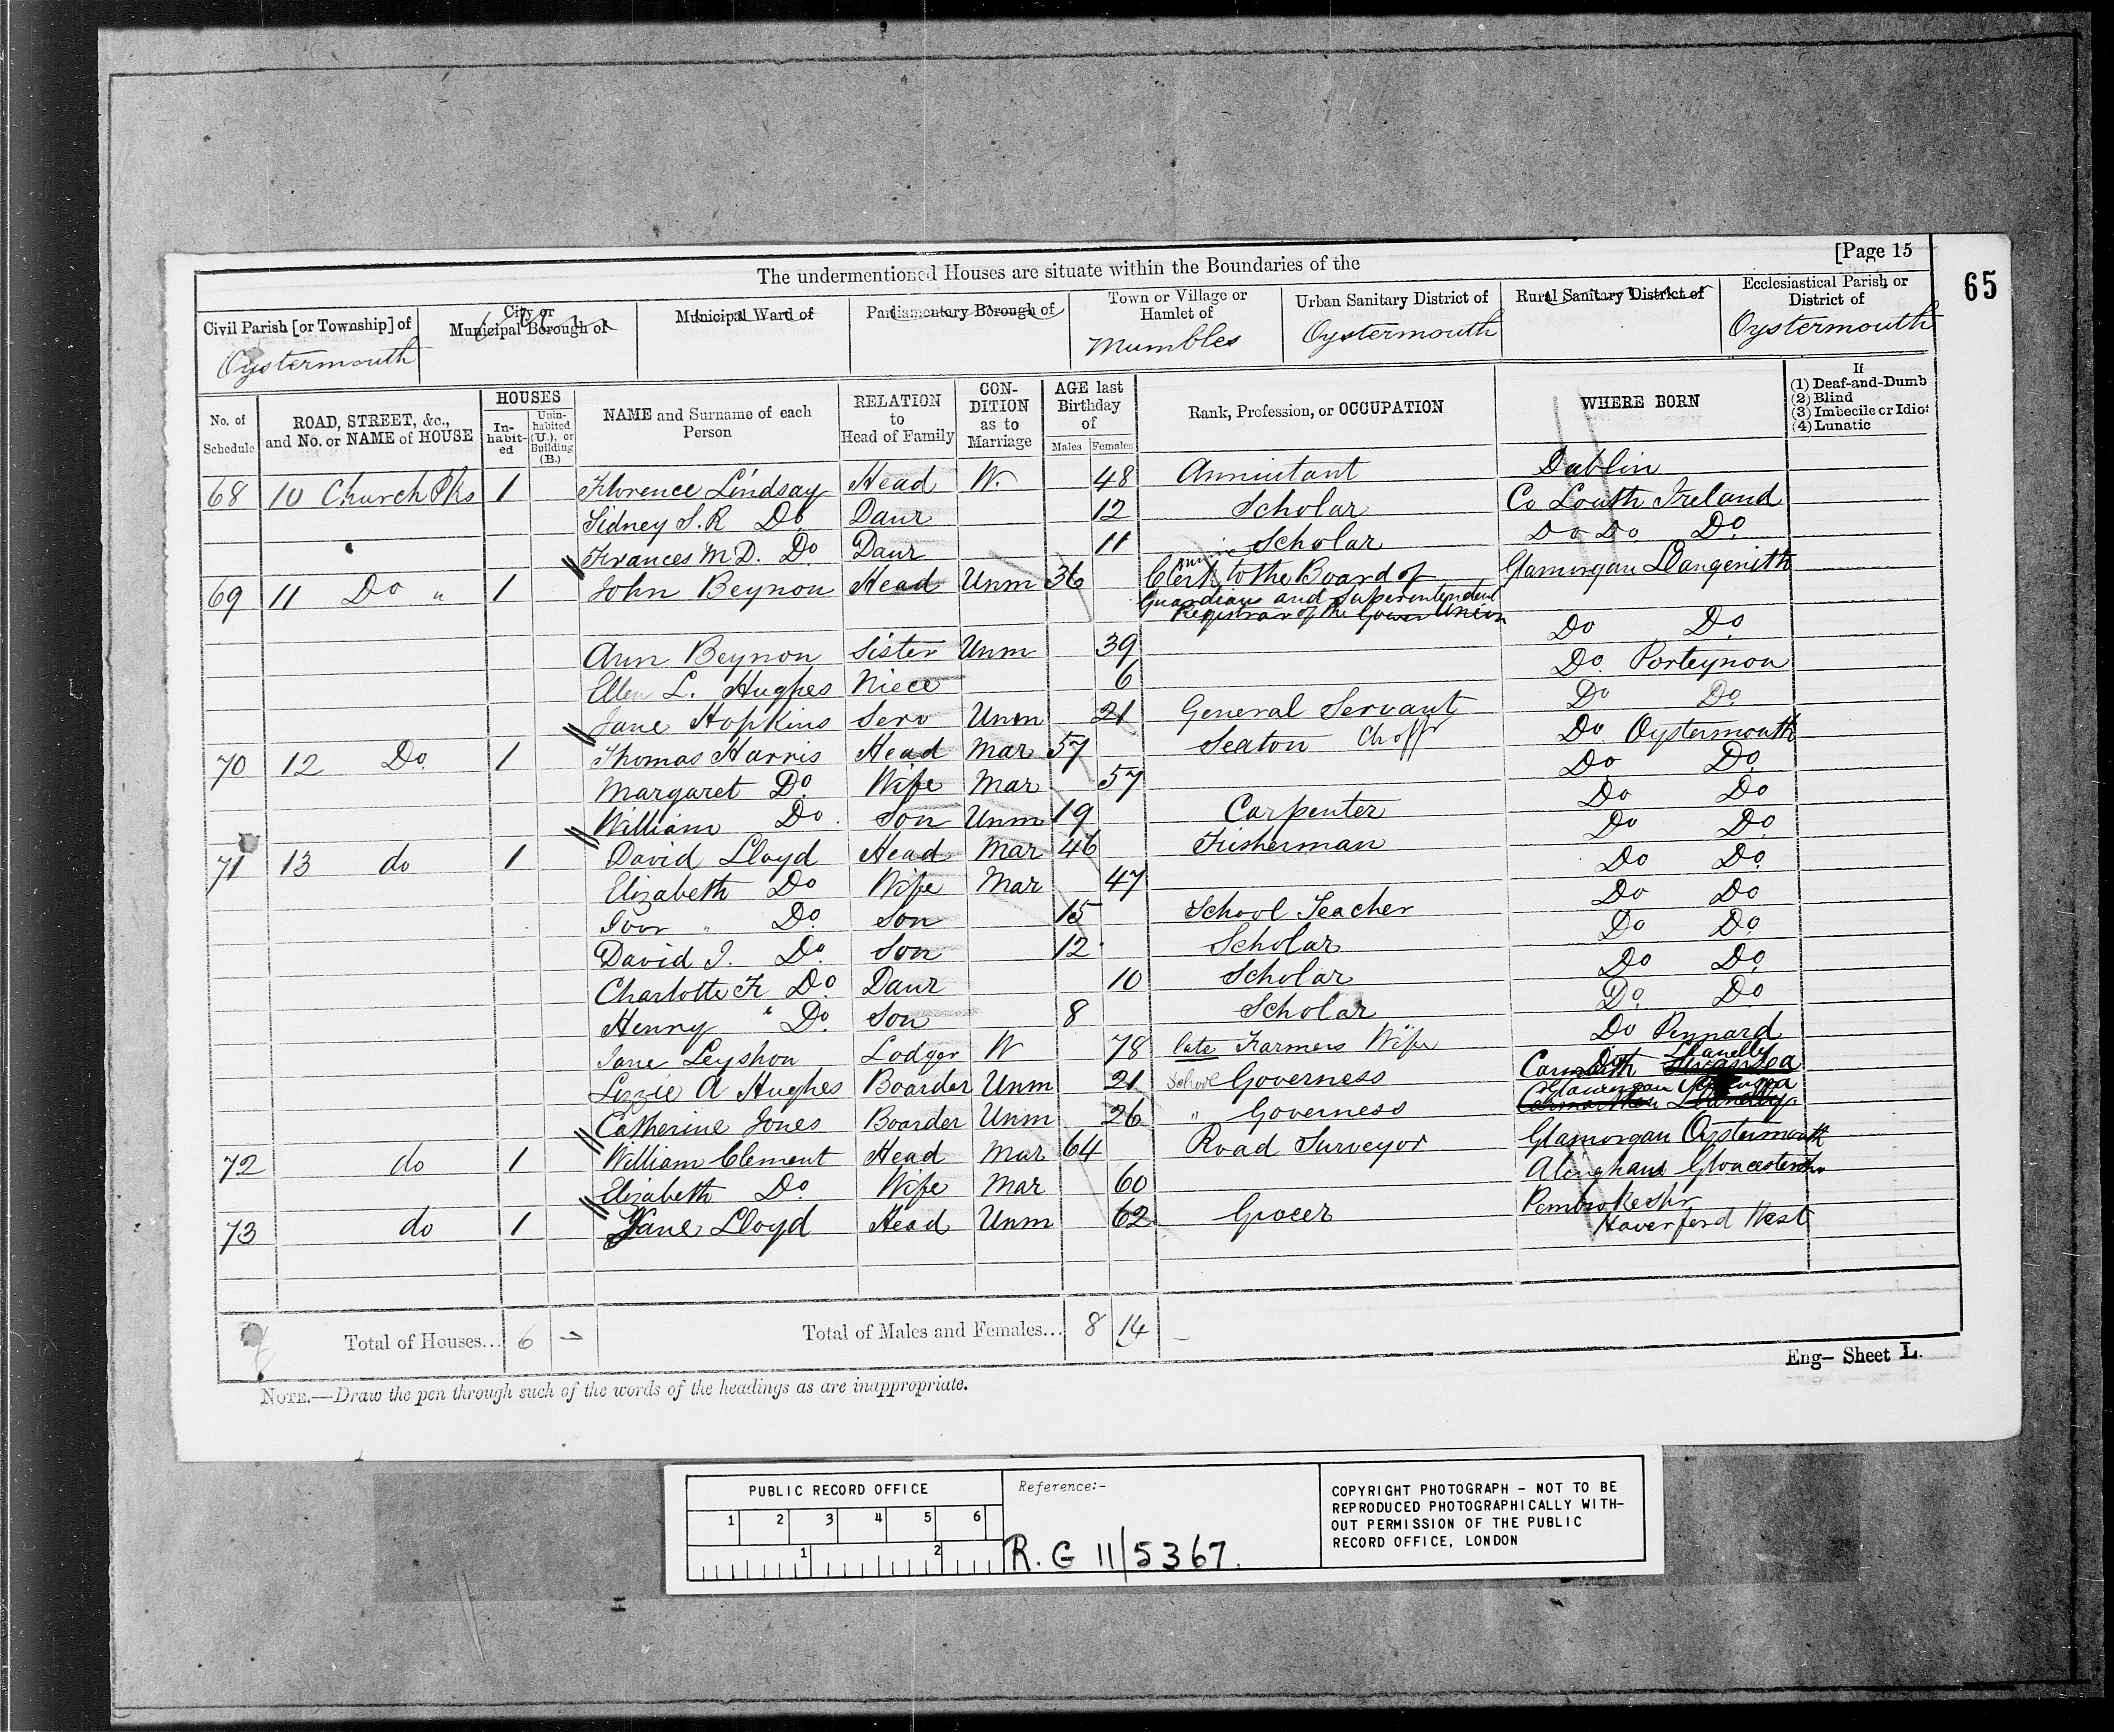 [Page 15
65
The undermentioned Houses are situate within the Boundaries of the
Civil Parish [or Township] of
Oystermouth
City or
Municipal Borough of
Municipal Ward of
Parliamentary Borough of
Town or Village or
Hamlet of
Mumbles
Urban Sanitary District of
Oystermouth
Rural Sanitary District of
Ecclesiastical Parish or
District of
Oystermouth
No. of
Schedule
ROAD, STREET, &c.,
and No. or NAME of HOUSE
HOUSES
In-
habit-
ed
Unin-
habited
(U.), or
Building
(B.)
NAME and Surname of each
Person
RELATION
to
Head of Family
CON-
DITION
as to
Marriage
AGE last
Birthday
of
Males Females
Rank, Profession, or OCCUPATION
WHERE BORN
If
(1) Deaf-and-Dumb
(2) Blind
(3) Imbecile or Idiot
(4) Lunatic
68 10 Church Pks 1 Florence Lindsay Head W. 48 Annuitant Dublin
Sidney S. R Do. Daur 12 Scholar Co Louth Ireland
Frances M D. Do. Daur 11 Scholar Do Do. Do.
69 11 Do " 1 John Beynon Head Unm 36 Clerk to the Board of Glamorgan Llangenith
Guardians and Superintendent
Registrar of the Gower Union
Ann Beynon Sister Unm 39 Do Do.
Ellen L. Hughes Niece 6 Do. Porteynon
Jane Hopkins Serv Unm 21 General Servant Do Do.
70 12 Do. 1 Thomas Harris Head Mar 57 Seaton Do Oystermouth
Margaret Do. Wife Mar 57 Do Do.
William Do. Son Unm 19 Carpenter Do Do
71 13 do 1 David Lloyd Head Mar 46 Fisherman Do Do
Elizabeth Do Wife Mar 47 Do Do.
Ivor " Do. Son 15 School Teacher Do Do
David J. Do. Son 12 Scholar Do Do
Charlotte Fr Do. Daur 10 Scholar Do Do.
Henry " Do. Son 8 Scholar Do. Do
Jane Leyshon Lodger W 78 late Farmers Wife Do Pennard
Lizzie A Hughes Boarder Unm 21 School Governess Carmarth Swansea Llanelly
Catherine Jones Boarder Unm 26 " Governess Glamorgan Swansea Carmarthen Llanelly
72 do 1 William Clement Head Mar 64 Road Surveyor Glamorgan Oystermouth
Elizabeth Do. Wife Mar 60 Gloucestershr
73 do 1 Jane Lloyd Head Unm 62 Grocer Pembrokeshr
Haverford West
Total of Houses... 6 Total of Males and Females... 8 14
Eng— Sheet L.
NOTE.—Draw the pen through such of the words of the headings as are inappropriate.
PUBLIC RECORD OFFICE
1 2 3 4 5 6
1 2
Reference:-
R. G 11/5367.
COPYRIGHT PHOTOGRAPH - NOT TO BE
REPRODUCED PHOTOGRAPHICALLY WITH-
OUT PERMISSION OF THE PUBLIC
RECORD OFFICE, LONDON